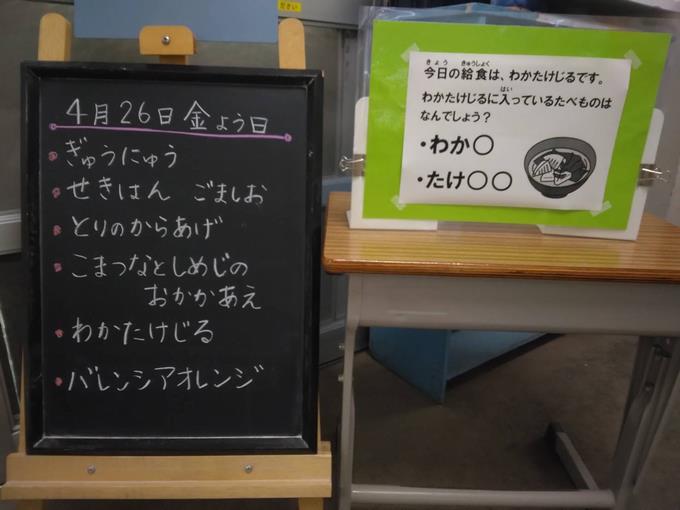 ださい
4月26日金よう日
ぎゅうにゅう
せきはん ごましお
とりのからあげ
こまつなとしめじの
おかかあえ
わかたけじる
バレンシアオレンジ
きょう きゅうしょく
今日の給食は、わかたけじるです。
はい
わかたけじるに入っているたべものは
なんでしょう？
・わか○
・たけ○○